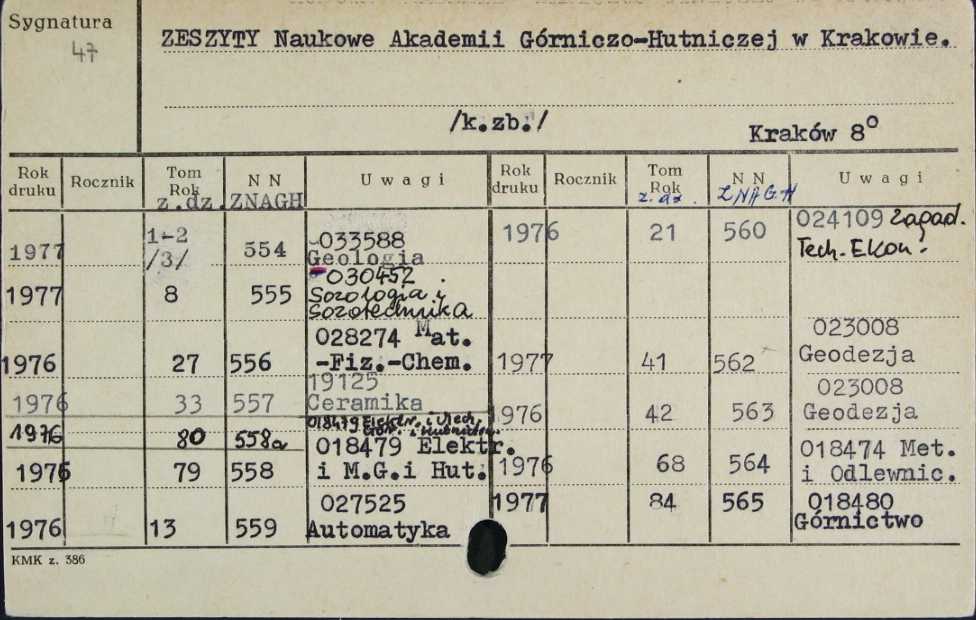 Sygnatura
47
ZESZYTY Naukowe Akademii Górniczo-Hutniczej w Krakowie.
/k.zb./
Kraków 8°
Rok druku Rocznik Tom Rok z.dz. N N ZNAGH Uwagi Rok druku Rocznik Tom Rok z.dz. N N ZNAGH Uwagi
1977 1-2 /3/ 554 033588 Geologia
1977 8 555 030452 Sozologia i Sozotechnika
1976 27 556 028274 Mat.-Fiz.-Chem.
1976 33 557 19125 Ceramika
1976 80 558a 018479 Elektr. i Mech.
1976 79 558 018479 Elektr. i M.G.i Hut.
1976 13 559 027525 Automatyka
1976 21 560 024109 Zagad. Tech. Ekon.
1977 41 562 023008 Geodezja
1976 42 563 023008 Geodezja
1976 68 564 018474 Met. i Odlewnic.
1977 84 565 018480 Górnictwo
KMK z. 386